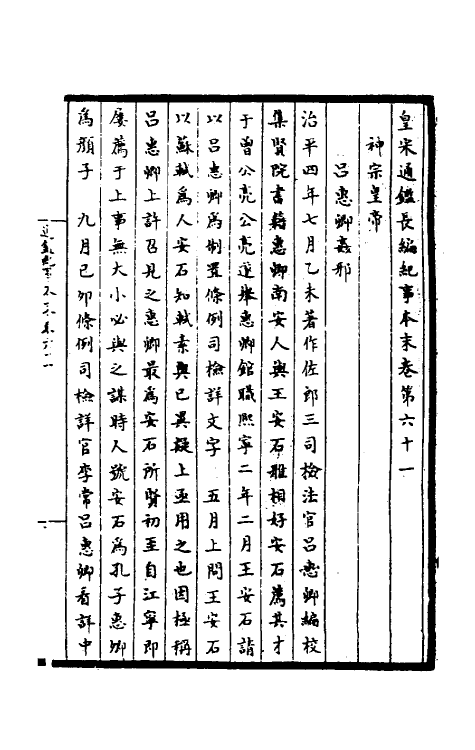 皇宋通鑑長編紀事本末卷第六十一
神宗皇帝
呂惠卿姦邪
治平四年七月乙未著作佐郎三司檢法官呂惠卿編校
集賢院書籍惠卿南安人與王安石雅相好安石薦其才
于曾公亮公亮遂舉惠卿館職熙寧二年二月王安石請
以呂惠卿為制置條例司檢詳文字 五月上問王安石
以蘇軾為人安石知軾素與已異疑上亟用之也因極稱
呂惠卿上許召見之惠卿最為安石所賢初至自江寧即
屢薦于上事無大小必與之謀時人號安石為孔子惠卿
為顏子 九月己卯條例司檢詳官李常呂惠卿看詳中